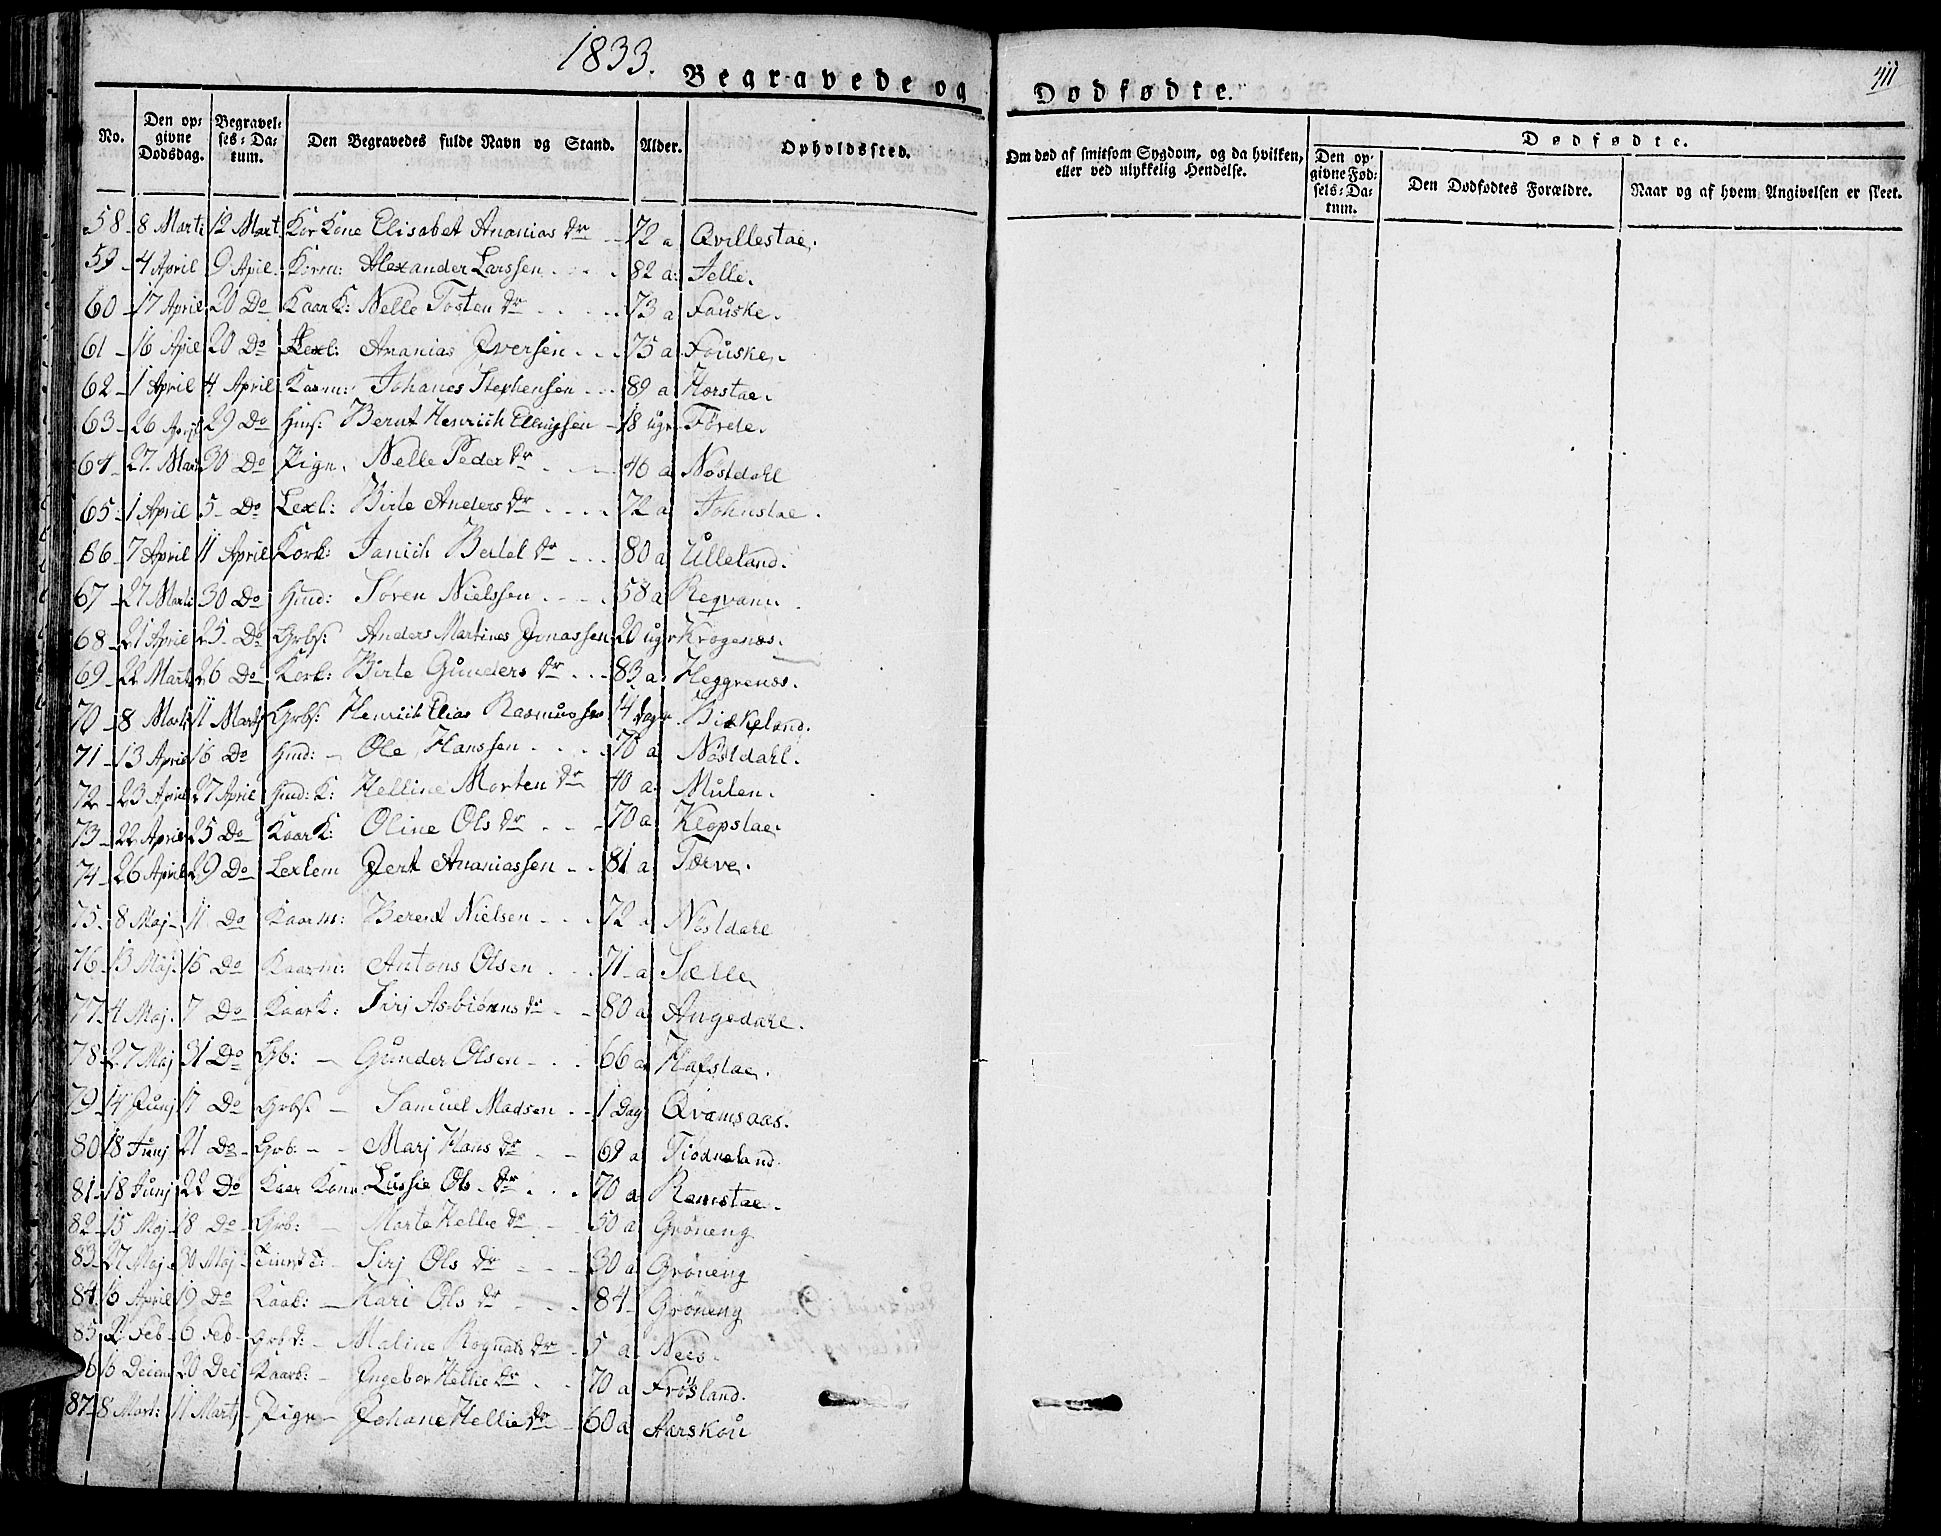 1833.
Begravede og Dødfødte.
411
No.
Den opgivne Dødsdag.
Begravelses-Datum.
Den Begravedes fulde Navn og Stand.
Alder.
Opholdssted.
Om død af smitsom Sygdom, og da hvilken, eller ved ulykkelig Hendelse.
Dødfødte.
Den opgivne Fødsels-Datum.
Den Dødfødtes Forældre.
Naar og af hvem Angivelsen er skeet.
58 - 8 Marti 12 Mart Kor Kone Elisabet Ananias Dr - 72 a Qvillestae.
59 - 4 April 9 Apil Korm: Alexander Larssen - 82 a: Jelle.
60 - 17 April 20 Do Kaar K: Nelle Tosten Dr - 73 a Fauske.
61 - 16 Apil 20 Do Lexl: Ananias Iversen - 75 a Fouske.
62 - 1 April 4 April Kaarm: Johanes Stephensen - 89 a Horstae.
63 - 26 April 29 Do Huus: Bernt Henrich Ellingsen - 18 ugr Förde.
64 - 27 Mart 30 Do Pige. Nelle Peder Dr - 46 a Nöstdahl
65 - 1 April 5 Do Lexl: Birte Anders Dr - 72 a Johnstae.
66 - 7 April 11 April Kork: Janich Bertel Dr - 80 a Ulleland.
67 - 27 Marti 30 Do Huusd: Sören Nielssen - 58 a
68 - 21 April 25 Do Grbs: Anders Martines Jonassen 20 ugr Krogenæs.
69 - 22 Mart 26 Do Kork: Birte Gunders Dr - 83 a Heggrenæs.
70 - 8 Marti 11 Martj Grbs: Henrich Elias Rasmussen 14 dage Birkeland.
71 - 13 April 16 Do Huusd: - Ole Hanssen - 70 a Nöstdahl.
72 - 23 April 27 April Huusd: K: Helline Morten Dr 40 a Mulen.
73 - 22 April 25 Do Kaar K: Oline Ols Dr - 70 a Klopstae.
74 - 26 April 29 Do Lexlem Jert Ananiassen - 81 a Tærve.
75 - 8 Maj - 11 Do Kaarm: Berent Nielsen - 72 a Nöstdahl
76 - 13 Maj 15 Do Kaarm: Antons Olsen - 71 a Sælle
77 - 4 Maj 7 Do Kaar K: Sirj Asbiönns Dr - 80 a Angedahl.
78 - 27 Maj 31 Do Gb: - Gunder Olsen - 66 a Hafstae.
79 - 14 Junj 17 Do Grbs: - Samuel Madsen - 1 Dag Qvamsaas.
80 18 Junj 21 Do - Grb: - Marj Hans Dr - 69 a Tiödneland
81 - 18 Junj 22 Do Kaar Kone Lussie Ols Dr - 70 a Ramstae.
82 - 15 Maj 18 Do - Grb: - Marte Hellie Dr - 50 a Gröneng
83 - 27 Maj 30 Maj - Sirj Ols Dr - 30 a Gröneng
84 - 16 April 19 Do Kaak: - Kari Ols Dr - 84 - Gröneng
85 2 Feb - 6 Feb - Maline Rognals Dr - 5 a Nees.
86 16 Decem 20 Dec Kaark: - Ingebor Hellie Dr - 70 a Frösland.
87 - 8 Mart: 11 Martj - Pige - Johane Hellie Dr - 60 a Aarskou